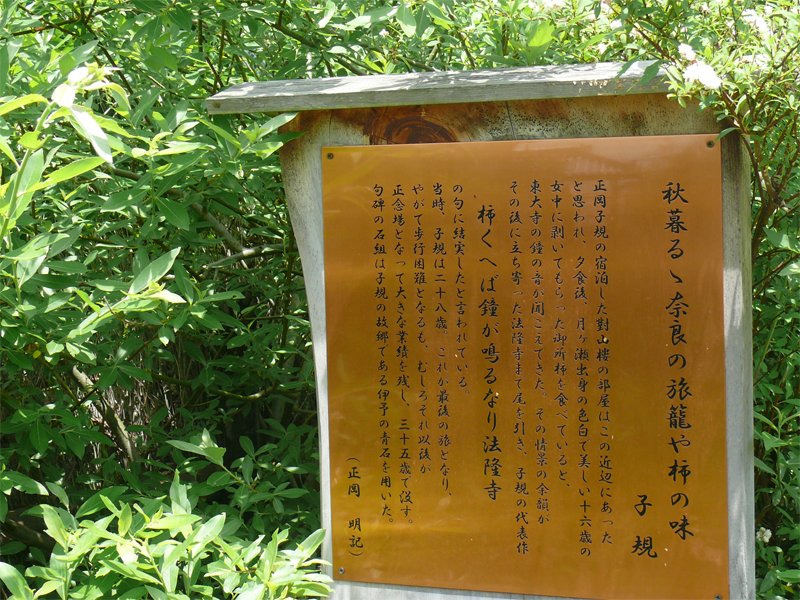 秋暮るゝ奈良の旅籠や柿の味
子規
正岡子規の宿泊した對山樓の部屋はこの近辺にあった
と思われ、夕食後、月ヶ瀬出身の色白で美しい十六歳の
女中に剥いてもらった御所柿を食べていると、
東大寺の鐘の音が聞こえてきた。その情景の余韻が
その後に立ち寄った法隆寺まで尾を引き、子規の代表作
柿くへば鐘が鳴るなり法隆寺
の句に結実したと言われている。
当時、子規は二十八歳。これが最後の旅となり、
やがて歩行困難となるも、むしろそれ以後が
正念場となって大きな業績を残し、三十五歳で没す。
句碑の石組は子規の故郷である伊予の青石を用いた。
(正岡 明記)